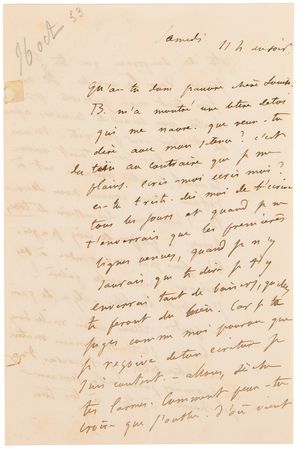 26 oct 53
Samedi 11 h du soir
Qu'as-tu donc pauvre chère Louise
B. m'a montré une lettre de toi
qui me navre. que veux-tu
dire avec mon silence? c'est
du tien au contraire que je me
plains. écris-moi écris-moi?
es-tu triste. dis-moi de t'écrire
tous les jours et quand je ne
t'enverrais que les premières
lignes venues, quand je n'y
saurais que te dire je t'y
enverrai tant de baisers, qu'elles
te feront du bien. Car je te
juges comme moi pourvu que
je reçoive de ton écriture je
suis content. – allons, sèche
tes larmes. Comment peux-tu
croire que j'oublie. D'où vient